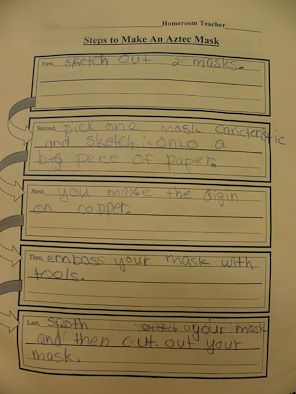 Homeroom Teacher
Steps to Make An Aztec Mask
First, sketch out 2 masks.
Second, pick one mask caricteristic
and sketch it onto a
big peice of paper.
Next, you make the
on copper.
Then, emboss your mask with
tools.
Last, your mask
and then cut out your
mask.